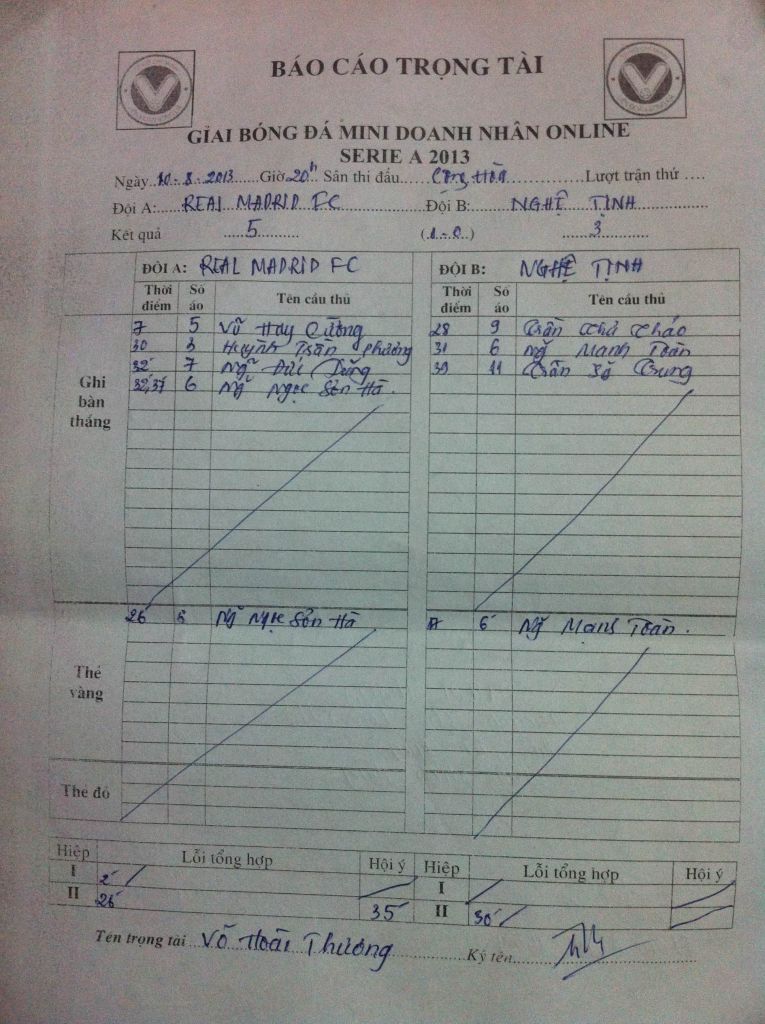 BÁO CÁO TRỌNG TÀI
GIẢI BÓNG ĐÁ MINI DOANH NHÂN ONLINE
SERIE A 2013
Ngày 10-8-2013 Giờ 20h Sân thi đấu Cộng Hòa Lượt trận thứ ....
Đội A: REAL MADRID FC Đội B: NGHỆ TỊNH
Kết quả 5 (1-0) 3
ĐỘI A: REAL MADRID FC ĐỘI B: NGHỆ TỊNH
Thời điểm Số áo Tên cầu thủ Thời điểm Số áo Tên cầu thủ
Ghi bàn thắng
7 5 Võ Huy Cường 28 9 Trần Thả Thảo
30 3 Huỳnh Trần Phương 31 6 Ng~ Mạnh Toàn
32' 7 Ng~ Đức Dũng 39 11 Trần Sỹ Trung
32', 37 6 Ng~ Ngọc Sơn Hà
Thẻ vàng
26 6 Ng~ Ngọc Sơn Hà 6 Ng~ Mạnh Toàn.
Thẻ đỏ
Hiệp Lỗi tổng hợp Hội ý Hiệp Lỗi tổng hợp Hội ý
I 2' I
II 26 35 II 30
Tên trọng tài Võ Hoài Thương Ký tên